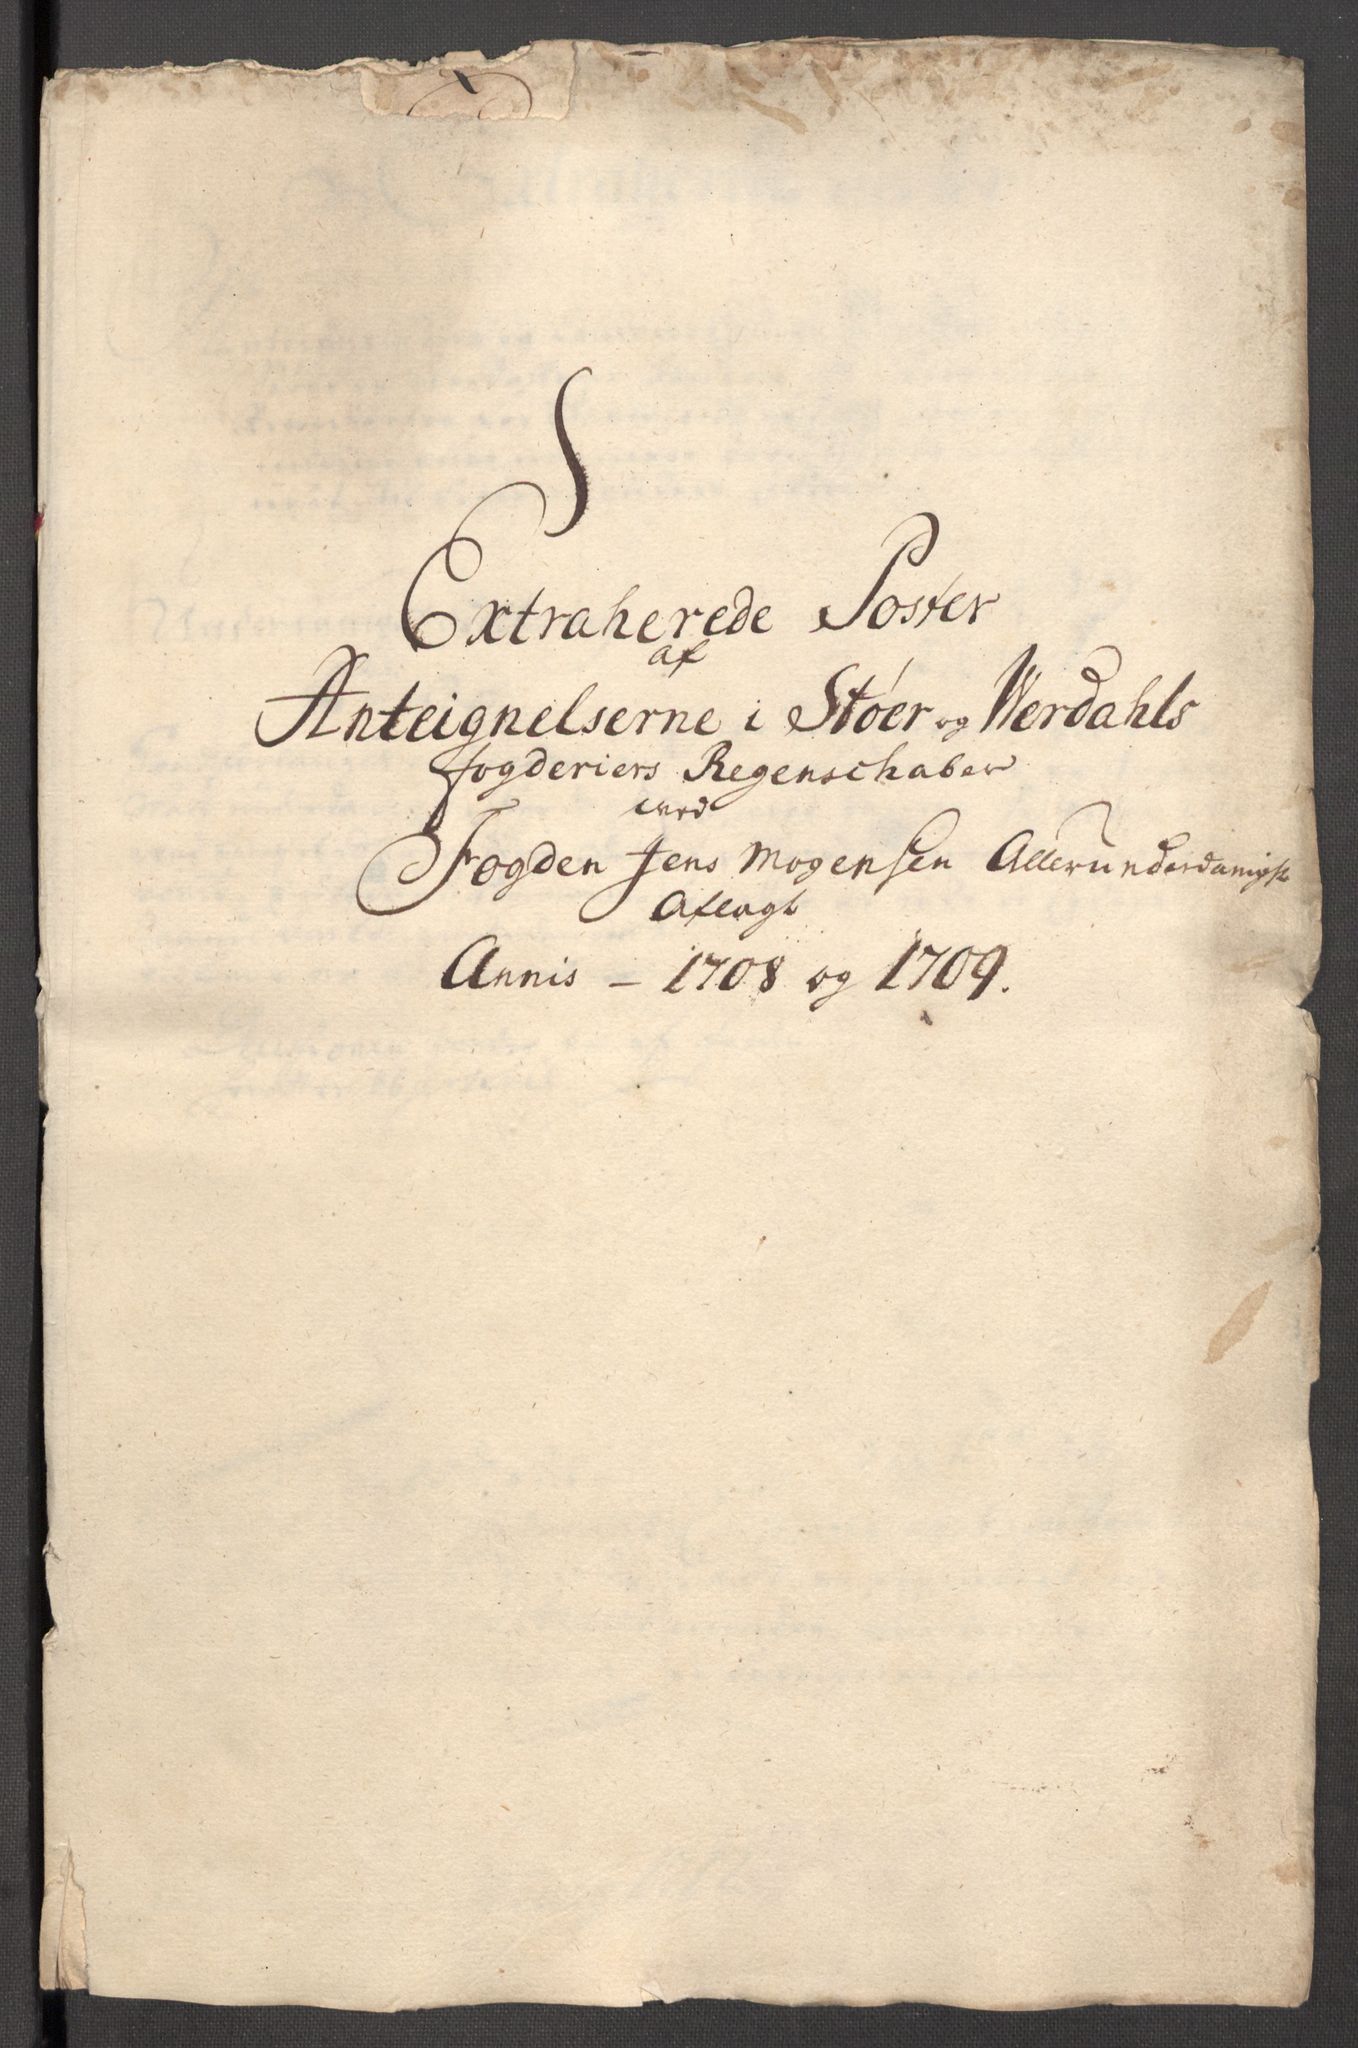 S
Extraherede Poster
af
Anteignelserne i Støer og Werdahls
fogderiers Regenschaber
ved
Fogden Jens Mogensen Allerunderdanigst
Aflagt
Annis - 1708 og 1709.